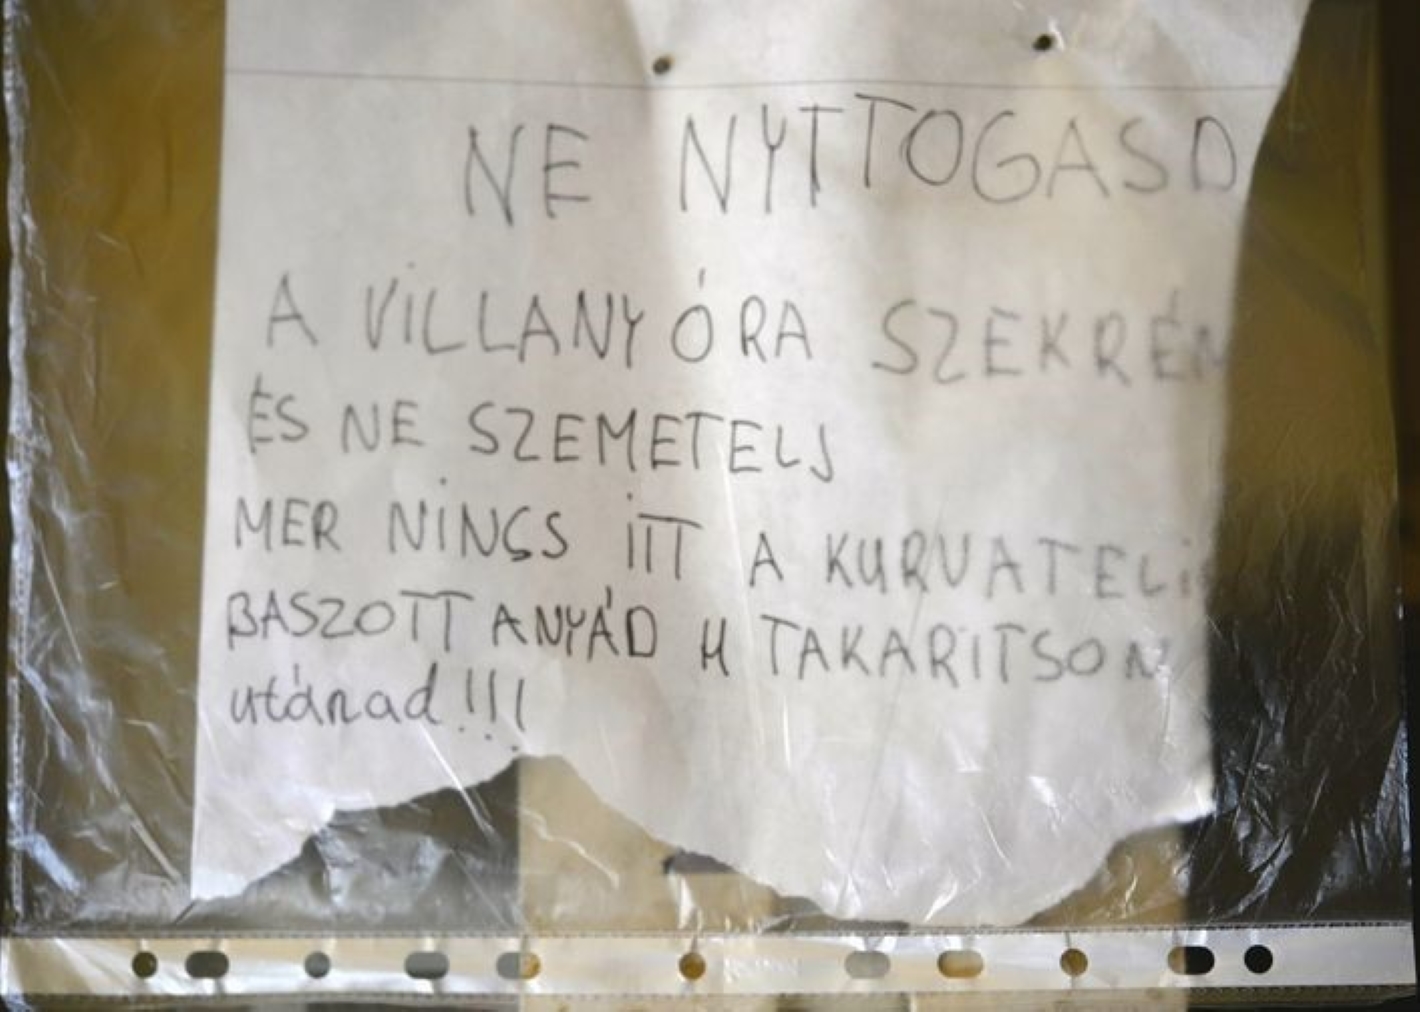 NE NYITOGASD
A VILLANY ÓRA SZEKRÉN
ÉS NE SZEMETELJ
MER NINCS ITT A KURVA TELI
BASZOTT ANYÁD H TAKARITSON
utánad!!!